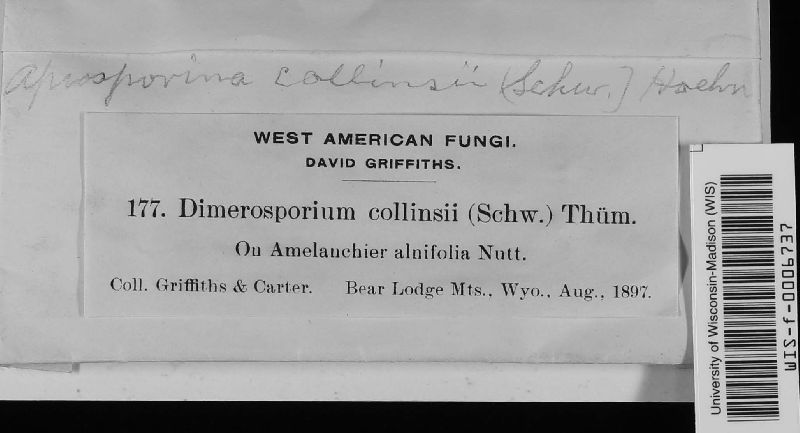 Apiosporina collinsii (Schw.) Hoehn
WEST AMERICAN FUNGI.
DAVID GRIFFITHS.
177. Dimerosporium collinsii (Schw.) Thüm.
On Amelanchier alnifolia Nutt.
Coll. Griffiths & Carter. Bear Lodge Mts., Wyo., Aug., 1897.
University of Wisconsin-Madison (WIS)
WIS-f-0006737